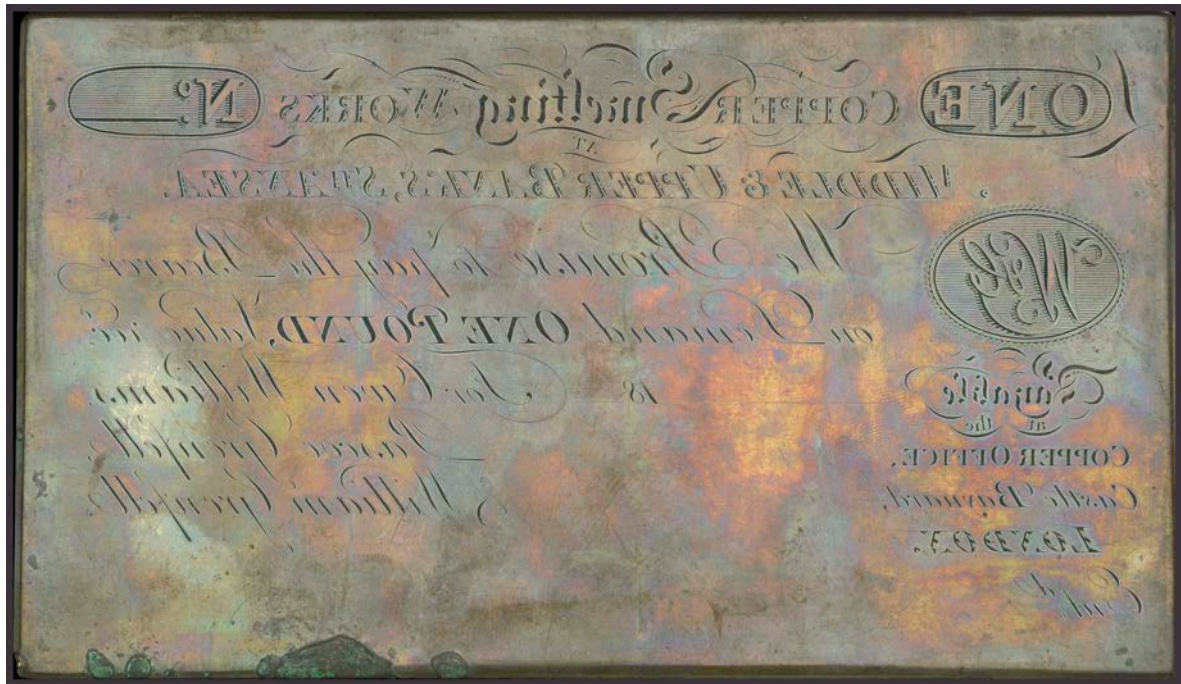 ONE COPPER Smelting WORKS No.
AT
MIDDLE & UPPER BANKS, SWANSEA.
W&G
We Promise to pay the Bearer
on Demand ONE POUND, Value recd.
18 For Owen Williams,
Pascoe Grenfell &
William Grenfell.
Payable
at the
COPPER OFFICE,
Castle Baynard,
LONDON.
Entd.